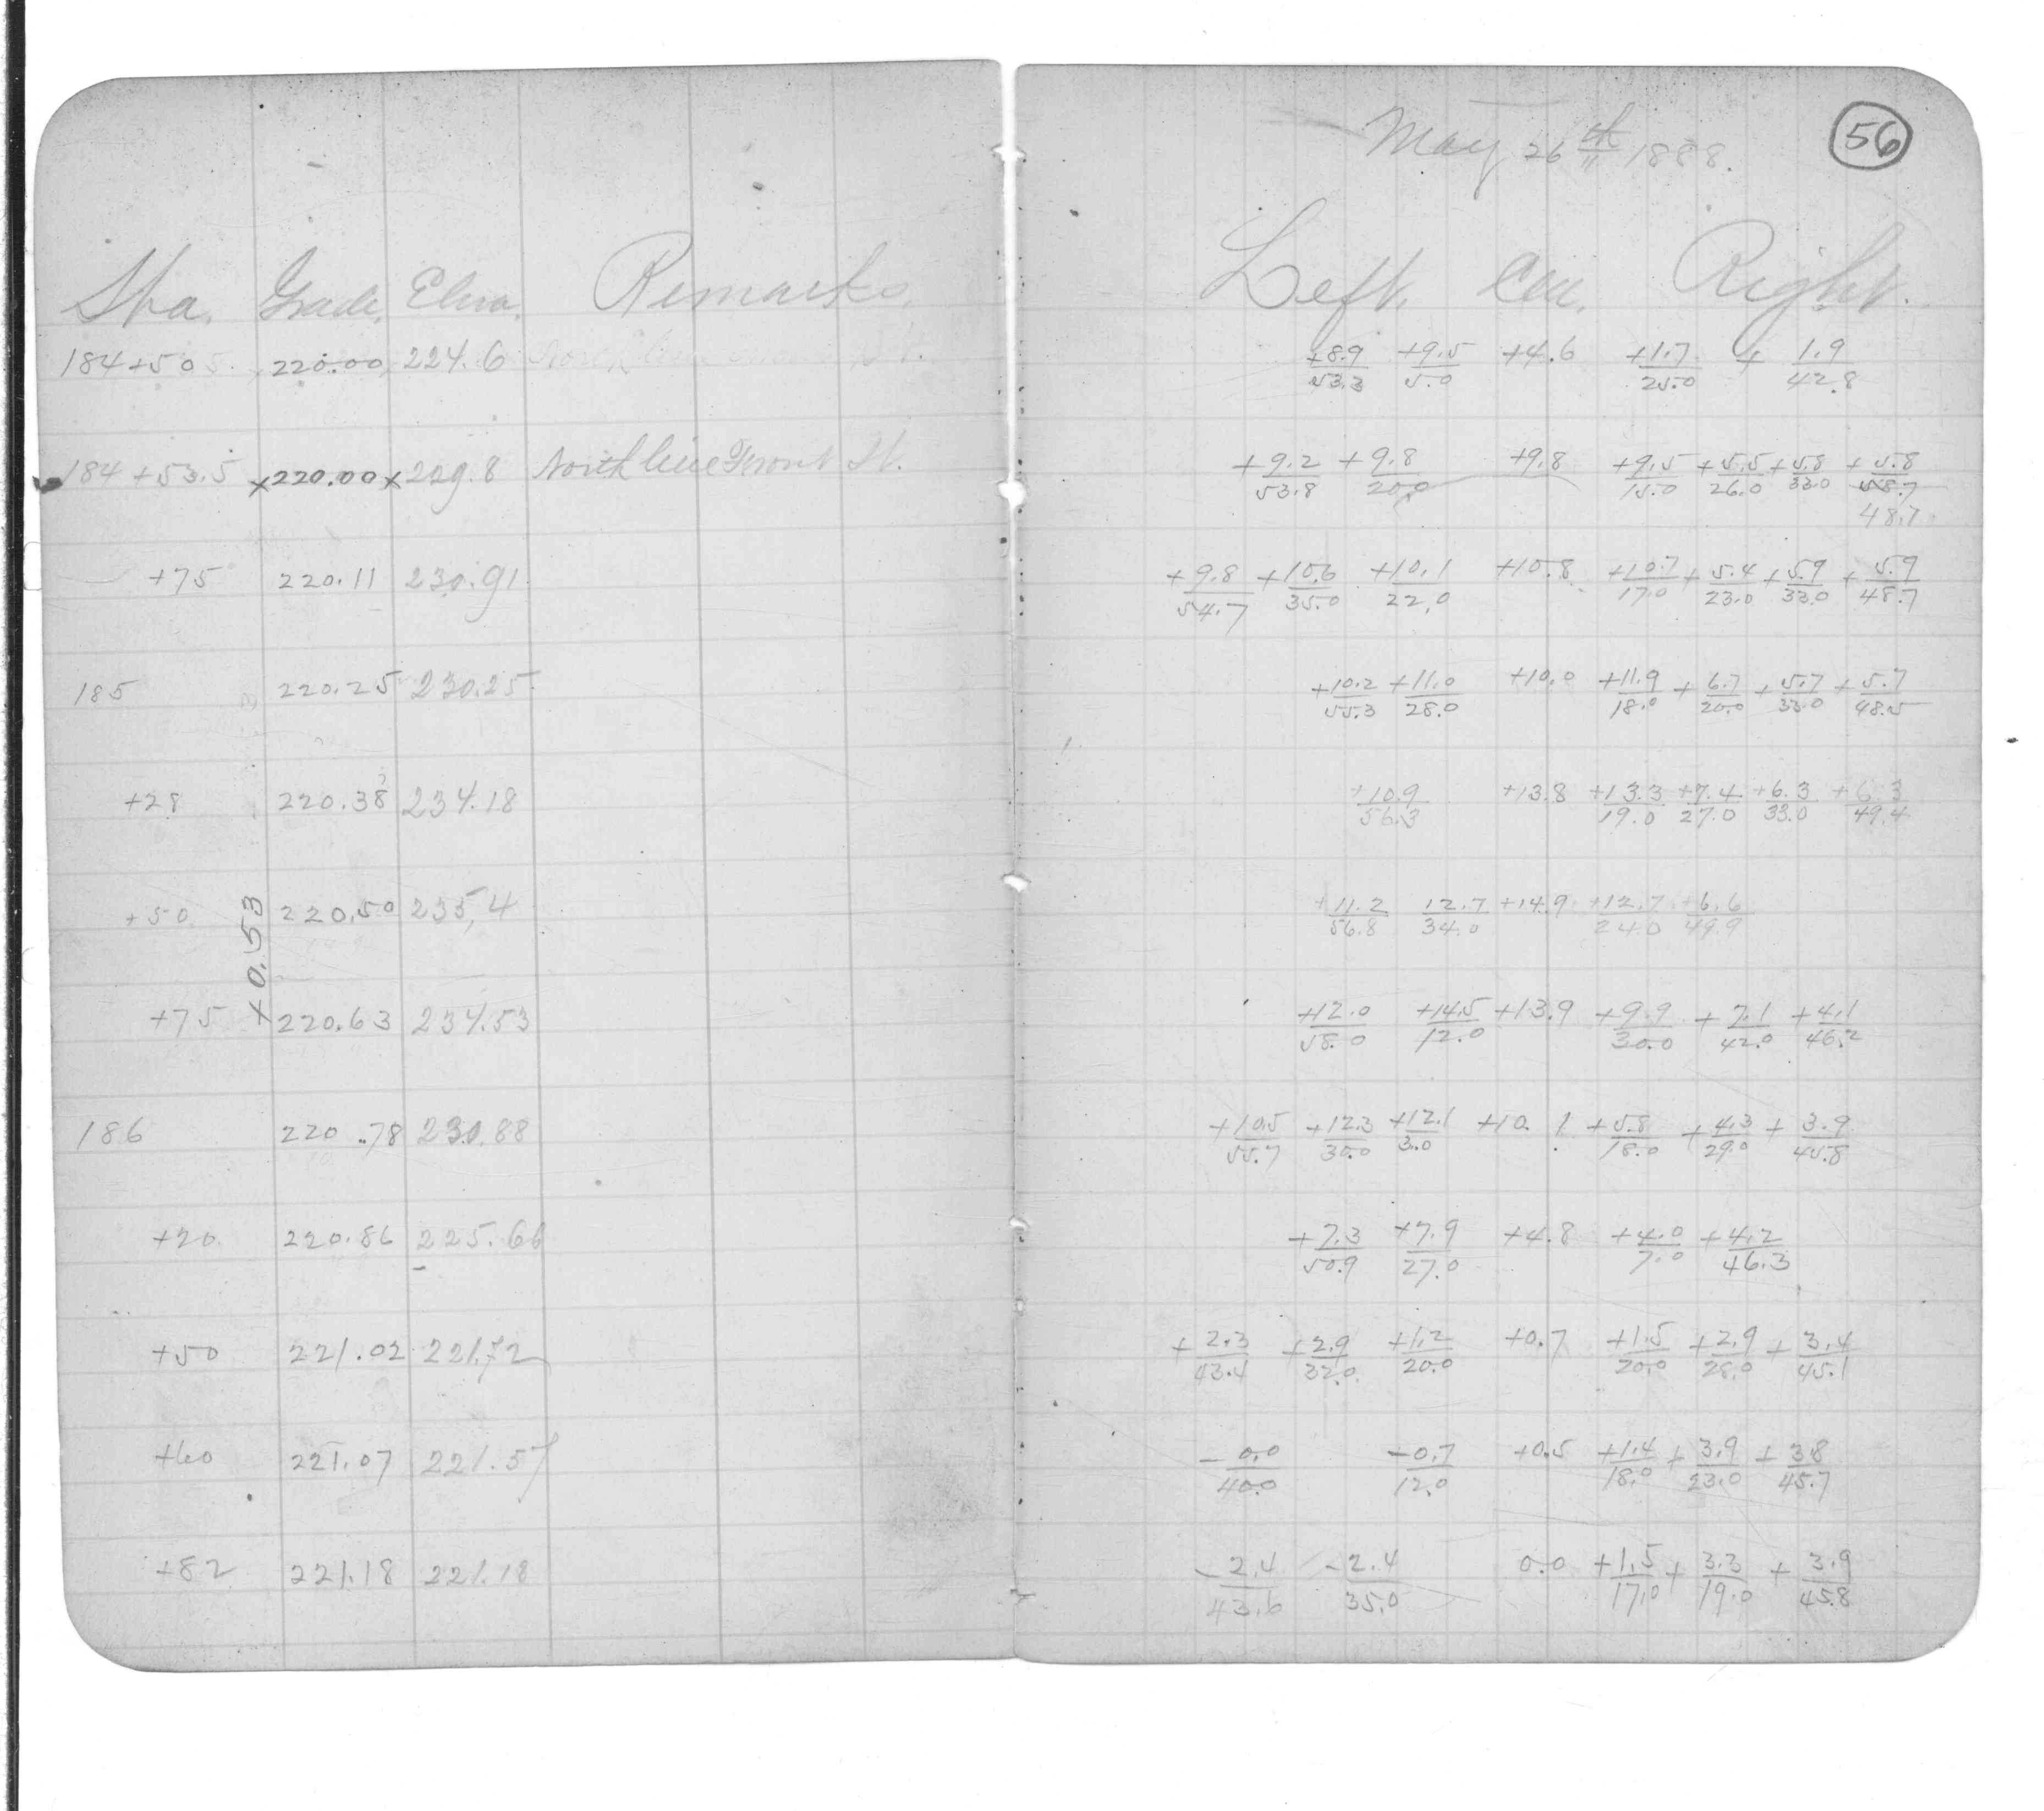 May 26th 1888.
56
Sta. Grade. Eleva. Remarks. Left. Cen. Right.
184+50 220.00 224.6 +8.9/53.3 +9.5/5.0 +4.6 +1.7/25.0 + 1.9/42.8
184+53.5 x220.00x 229.8 North line Front St. +9.2/53.8 +9.8/20.0 +9.8 +9.5/15.0 +5.5/26.0 +5.8/33.0 +5.8/58.7
48.7
+75 220.11 230.91 +9.8/54.7 +10.6/35.0 +10.1/22.0 +10.8 +10.7/17.0 +5.4/23.0 +5.9/33.0 +5.9/48.7
185 220.25 230.25 +10.2/55.3 +11.0/28.0 +10.0 +11.9/18.0 +6.7/20.0 +5.7/33.0 +5.7/48.5
+28 220.38 234.18 +10.9/56.3 +13.8 +13.3/19.0 +7.4/27.0 +6.3/33.0 +6.3/49.4
+50 220.50 235,4 +11.2/56.8 12.7/34.0 +14.9 +12.7/24.0 +6.6/49.9
+0.53
+75 220.63 234.53 +12.0/58.0 +14.5/12.0 +13.9 +9.9/30.0 +7.1/42.0 +4.1/46.2
186 220.78 230.88 +10.5/55.7 +12.3/30.0 +12.1/3.0 +10.1 +5.8/18.0 +4.3/29.0 +3.9/45.8
+20 220.86 225.66 +7.3/50.9 +7.9/27.0 +4.8 +4.0/7.0 +4.2/46.3
+50 221.02 221.72 +2.3/43.4 +2.9/32.0 +1.2/20.0 +0.7 +1.5/20.0 +2.9/28.0 +3.4/45.1
+60 221.07 221.57 -0.0/40.0 -0.7/12.0 +0.5 +1.4/18.0 +3.9/23.0 +3.8/45.7
+82 221.18 221.18 -2.4/43.6 -2.4/35.0 0.0 +1.5/17.0 +3.3/19.0 +3.9/45.8